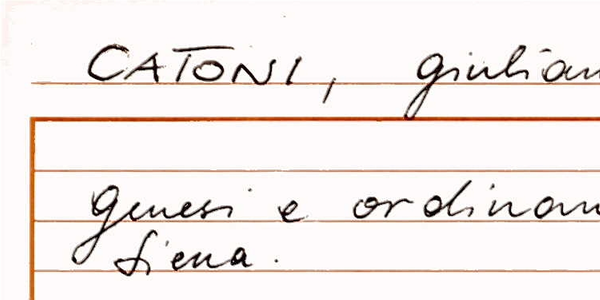 CATONI, Giulian
Genesi e ordinam
Siena.